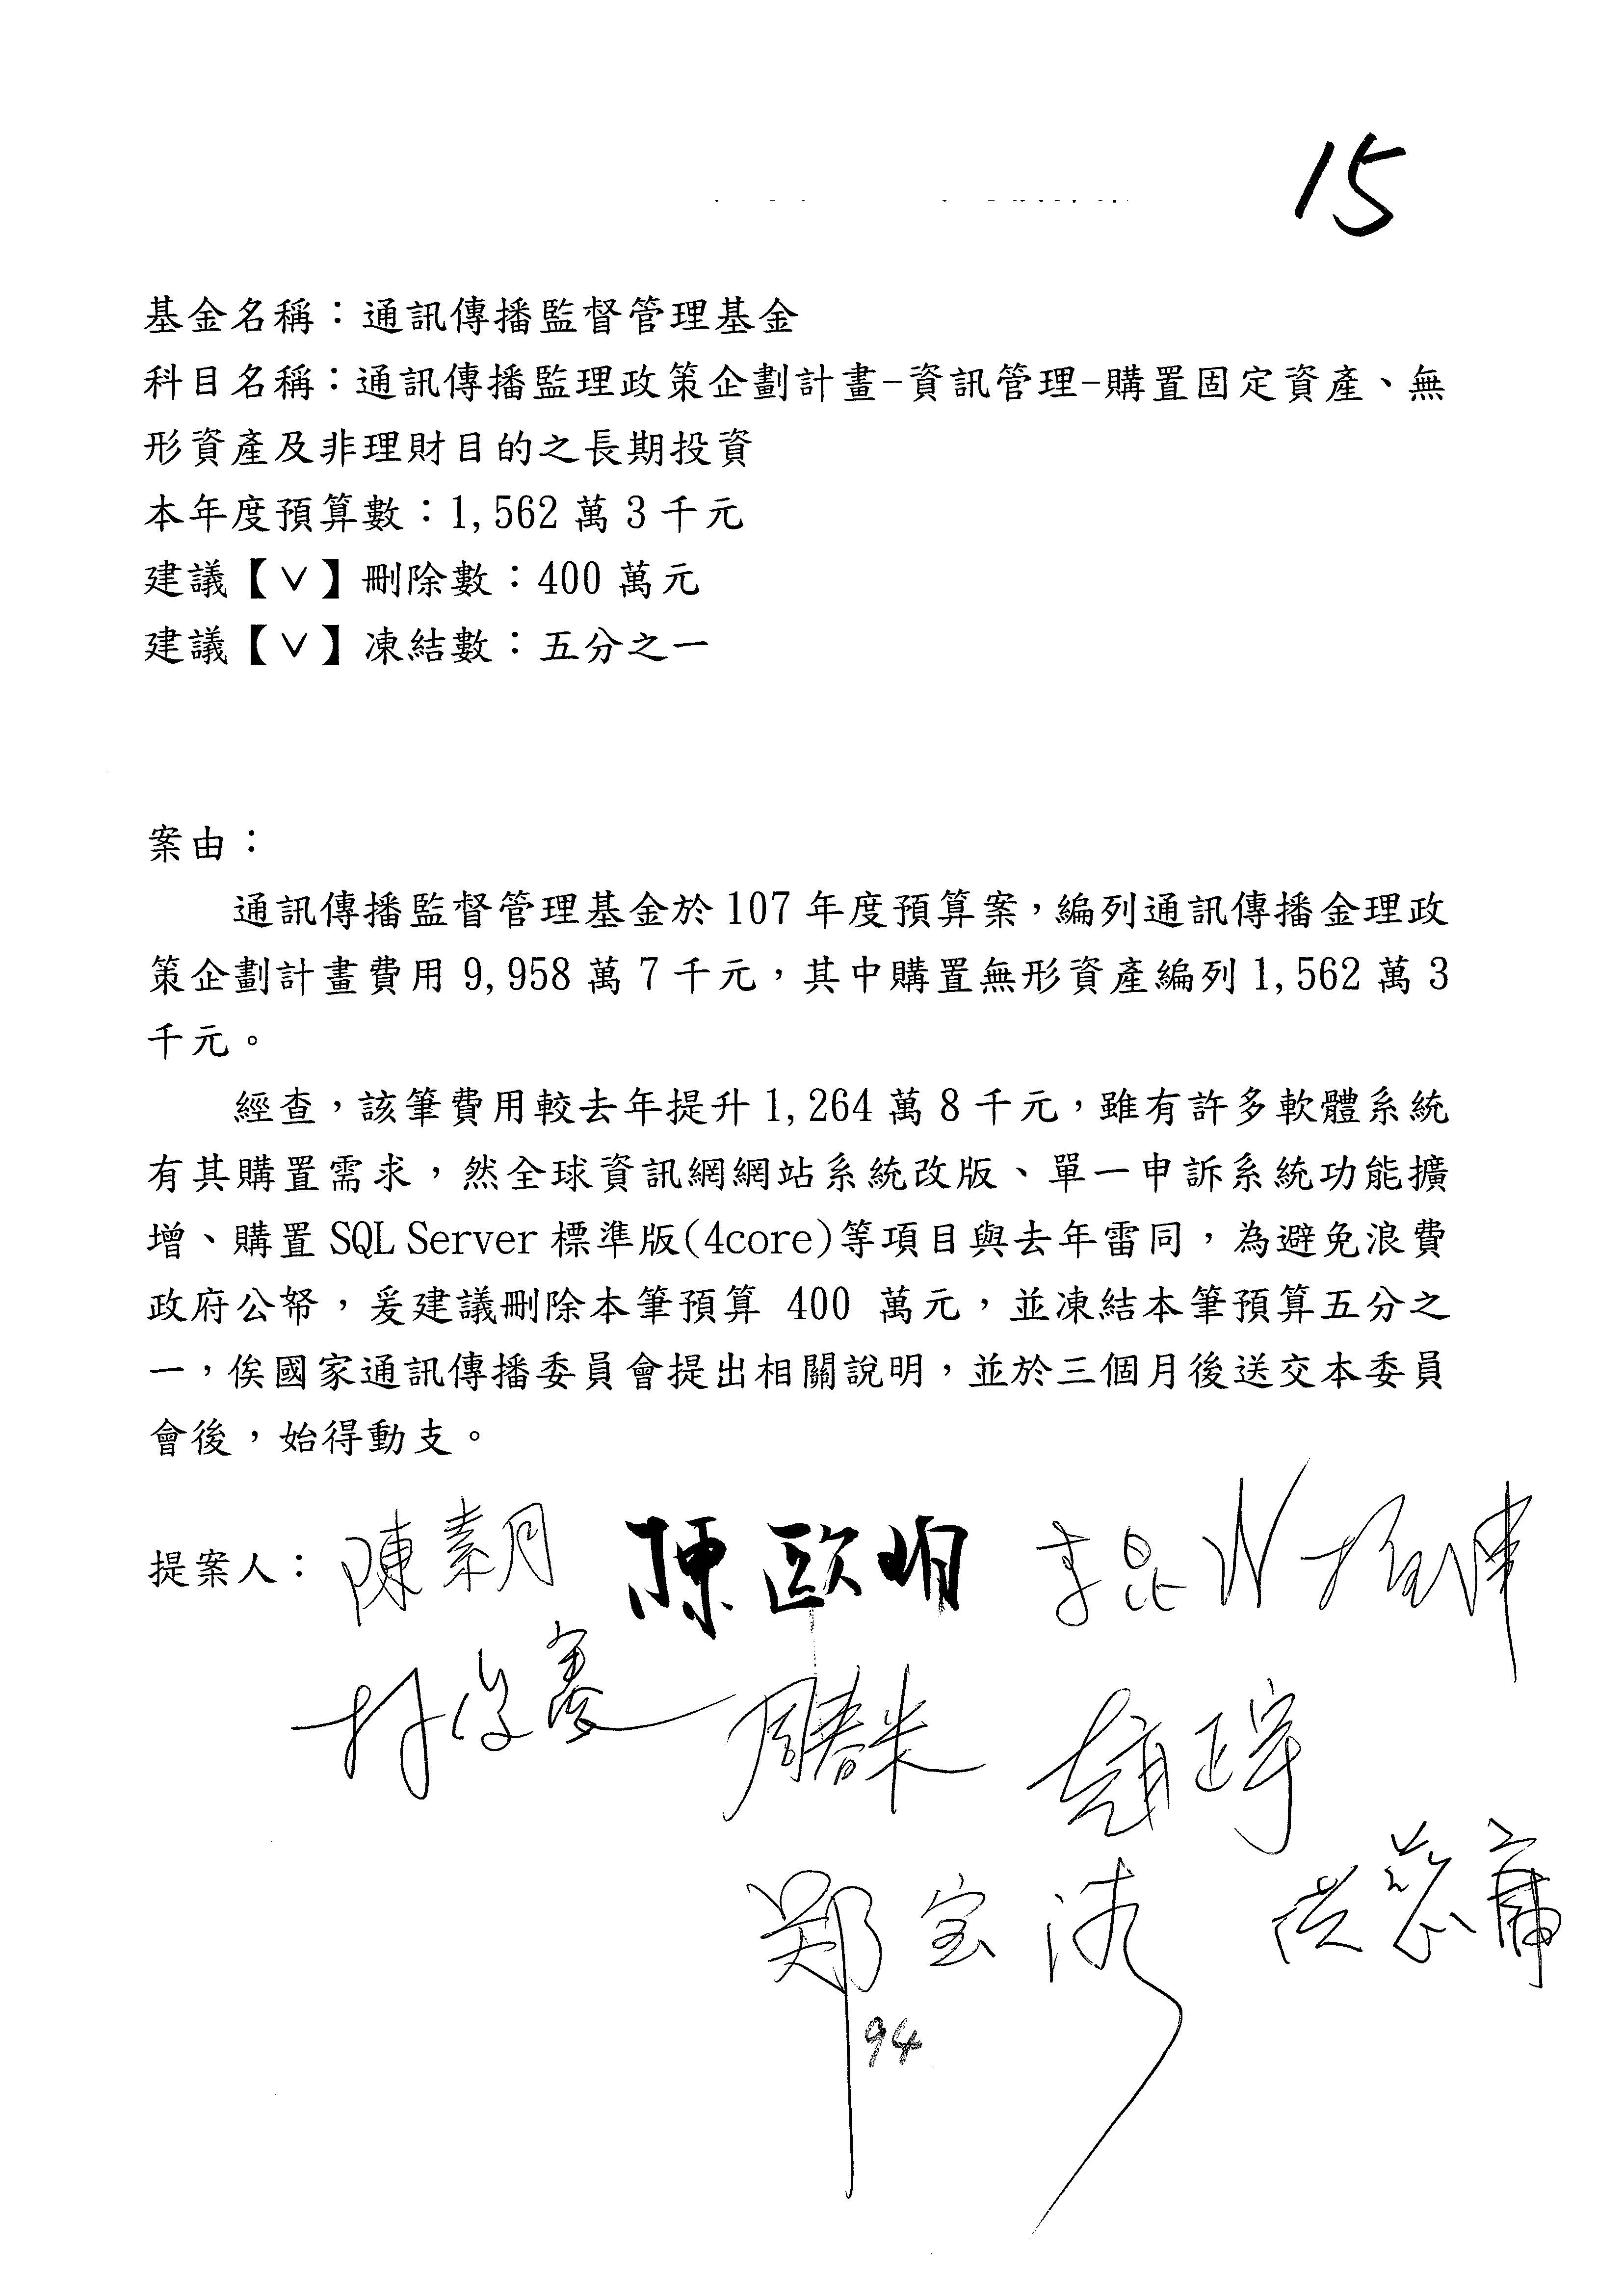 15
基金名稱：通訊傳播監督管理基金
科目名稱：通訊傳播監理政策企劃計畫-資訊管理-購置固定資產、無
形資產及非理財目的之長期投資
本年度預算數：1,562 萬 3 千元
建議【∨】刪除數：400 萬元
建議【∨】凍結數：五分之一
案由：
通訊傳播監督管理基金於 107 年度預算案，編列通訊傳播金理政
策企劃計畫費用 9,958 萬 7 千元，其中購置無形資產編列 1,562 萬 3
千元。
經查，該筆費用較去年提升 1,264 萬 8 千元，雖有許多軟體系統
有其購置需求，然全球資訊網網站系統改版、單一申訴系統功能擴
增、購置 SQL Server 標準版(4core)等項目與去年雷同，為避免浪費
政府公帑，爰建議刪除本筆預算 400 萬元，並凍結本筆預算五分之
一，俟國家通訊傳播委員會提出相關說明，並於三個月後送交本委員
會後，始得動支。
提案人： 陳素月 陳歐珀 李昆澤
林俊憲 周春米 趙正宇
鄭宝清 洪慈庸
94